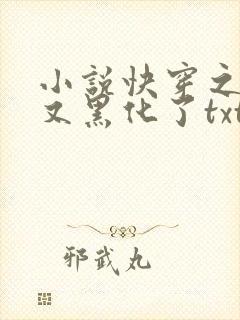 小说快穿之
又黑化了txt
邪武丸